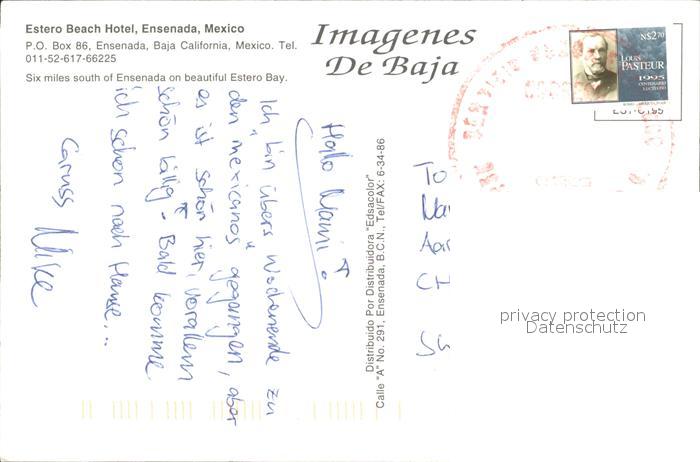 Estero Beach Hotel, Ensenada, Mexico
P.O. Box 86, Ensenada, Baja California, Mexico. Tel.
011-52-617-66225
Six miles south of Ensenada on beautiful Estero Bay.
Imagenes
De Baja
N$2.70
LOUIS
PASTEUR
1995
CENTENARIO
LUCTUOSO
Hallo Mami!
Ich bin übers Wochenende zu
den "mexicanos" gegangen, aber
es ist schön hier, vorallem
schön billig! Bald komme
ich schon nach Hause...
Mike
Distribuido Por Distribuidora "Edsacolor"
Calle "A" No. 291, Ensenada, B.C.N., Tel/FAX: 6-34-86
To
CH
privacy protection
Datenschutz